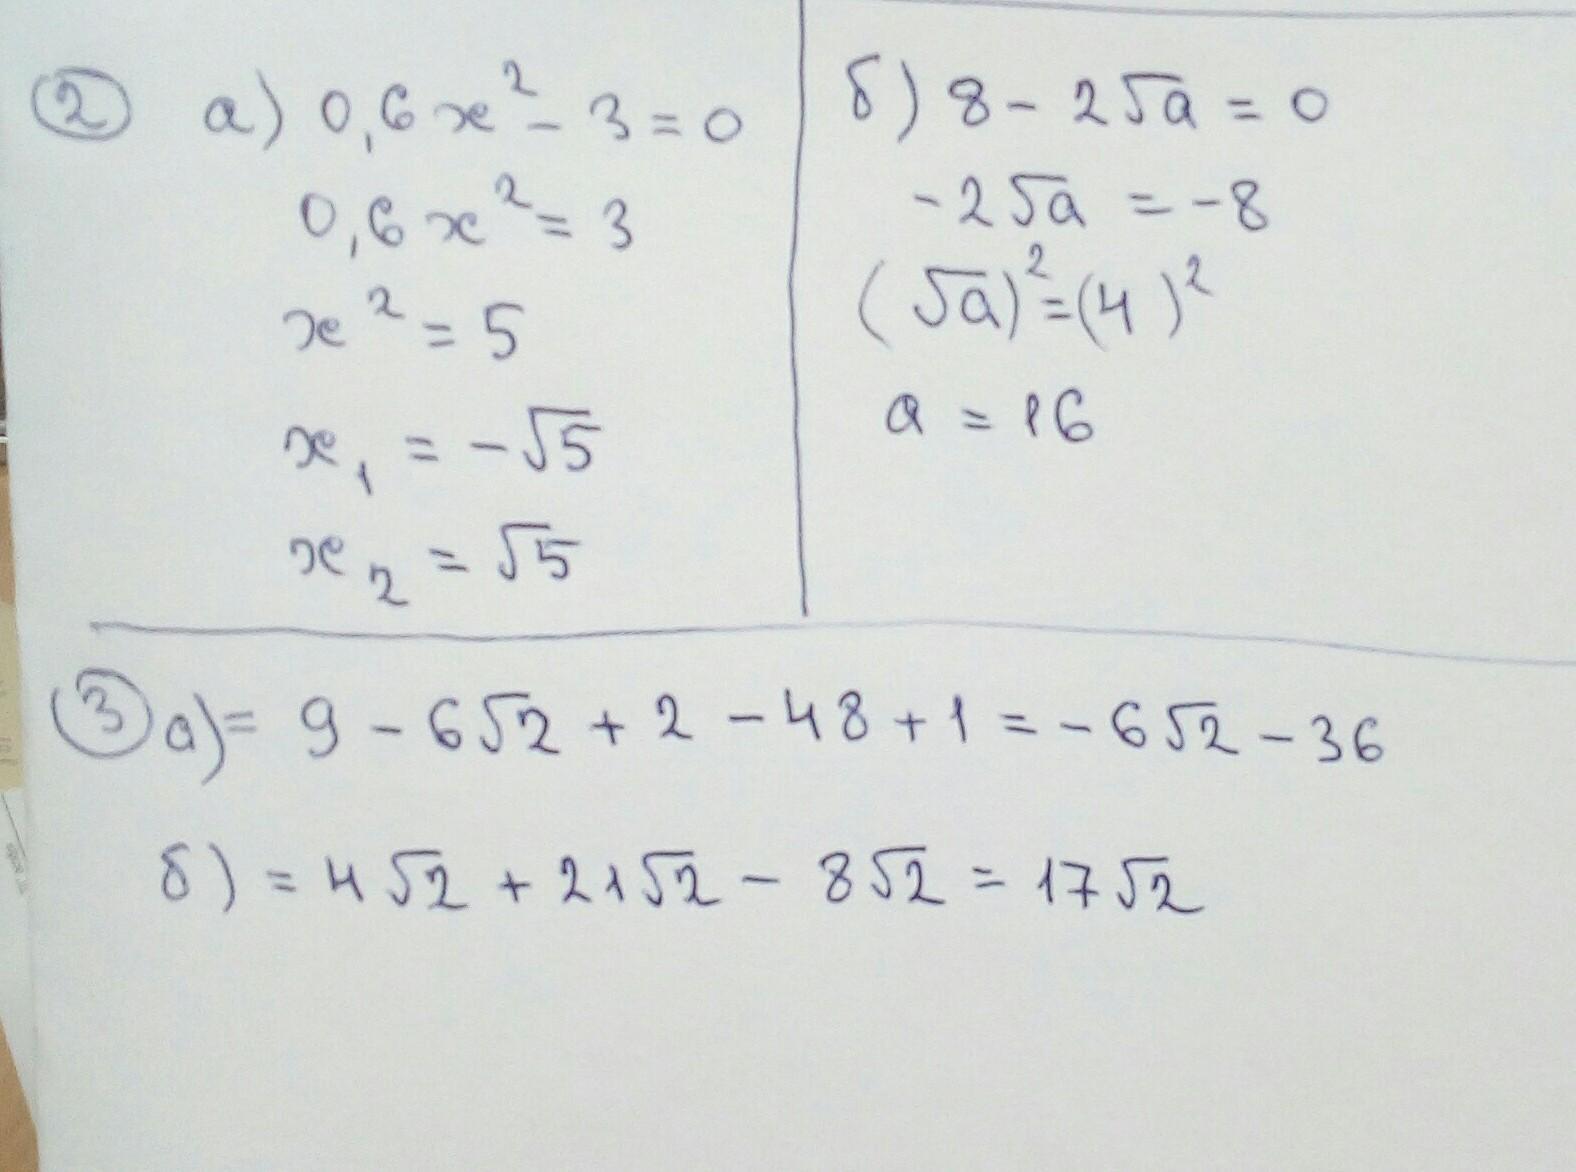 ② а) 0,6x² - 3 = 0
0,6x² = 3
x² = 5
x₁ = -√5
x₂ = √5
б) 8 - 2√a = 0
-2√a = -8
(√a)² = (4)²
a = 16
③ а) = 9 - 6√2 + 2 - 48 + 1 = -6√2 - 36
б) = 4√2 + 21√2 - 8√2 = 17√2